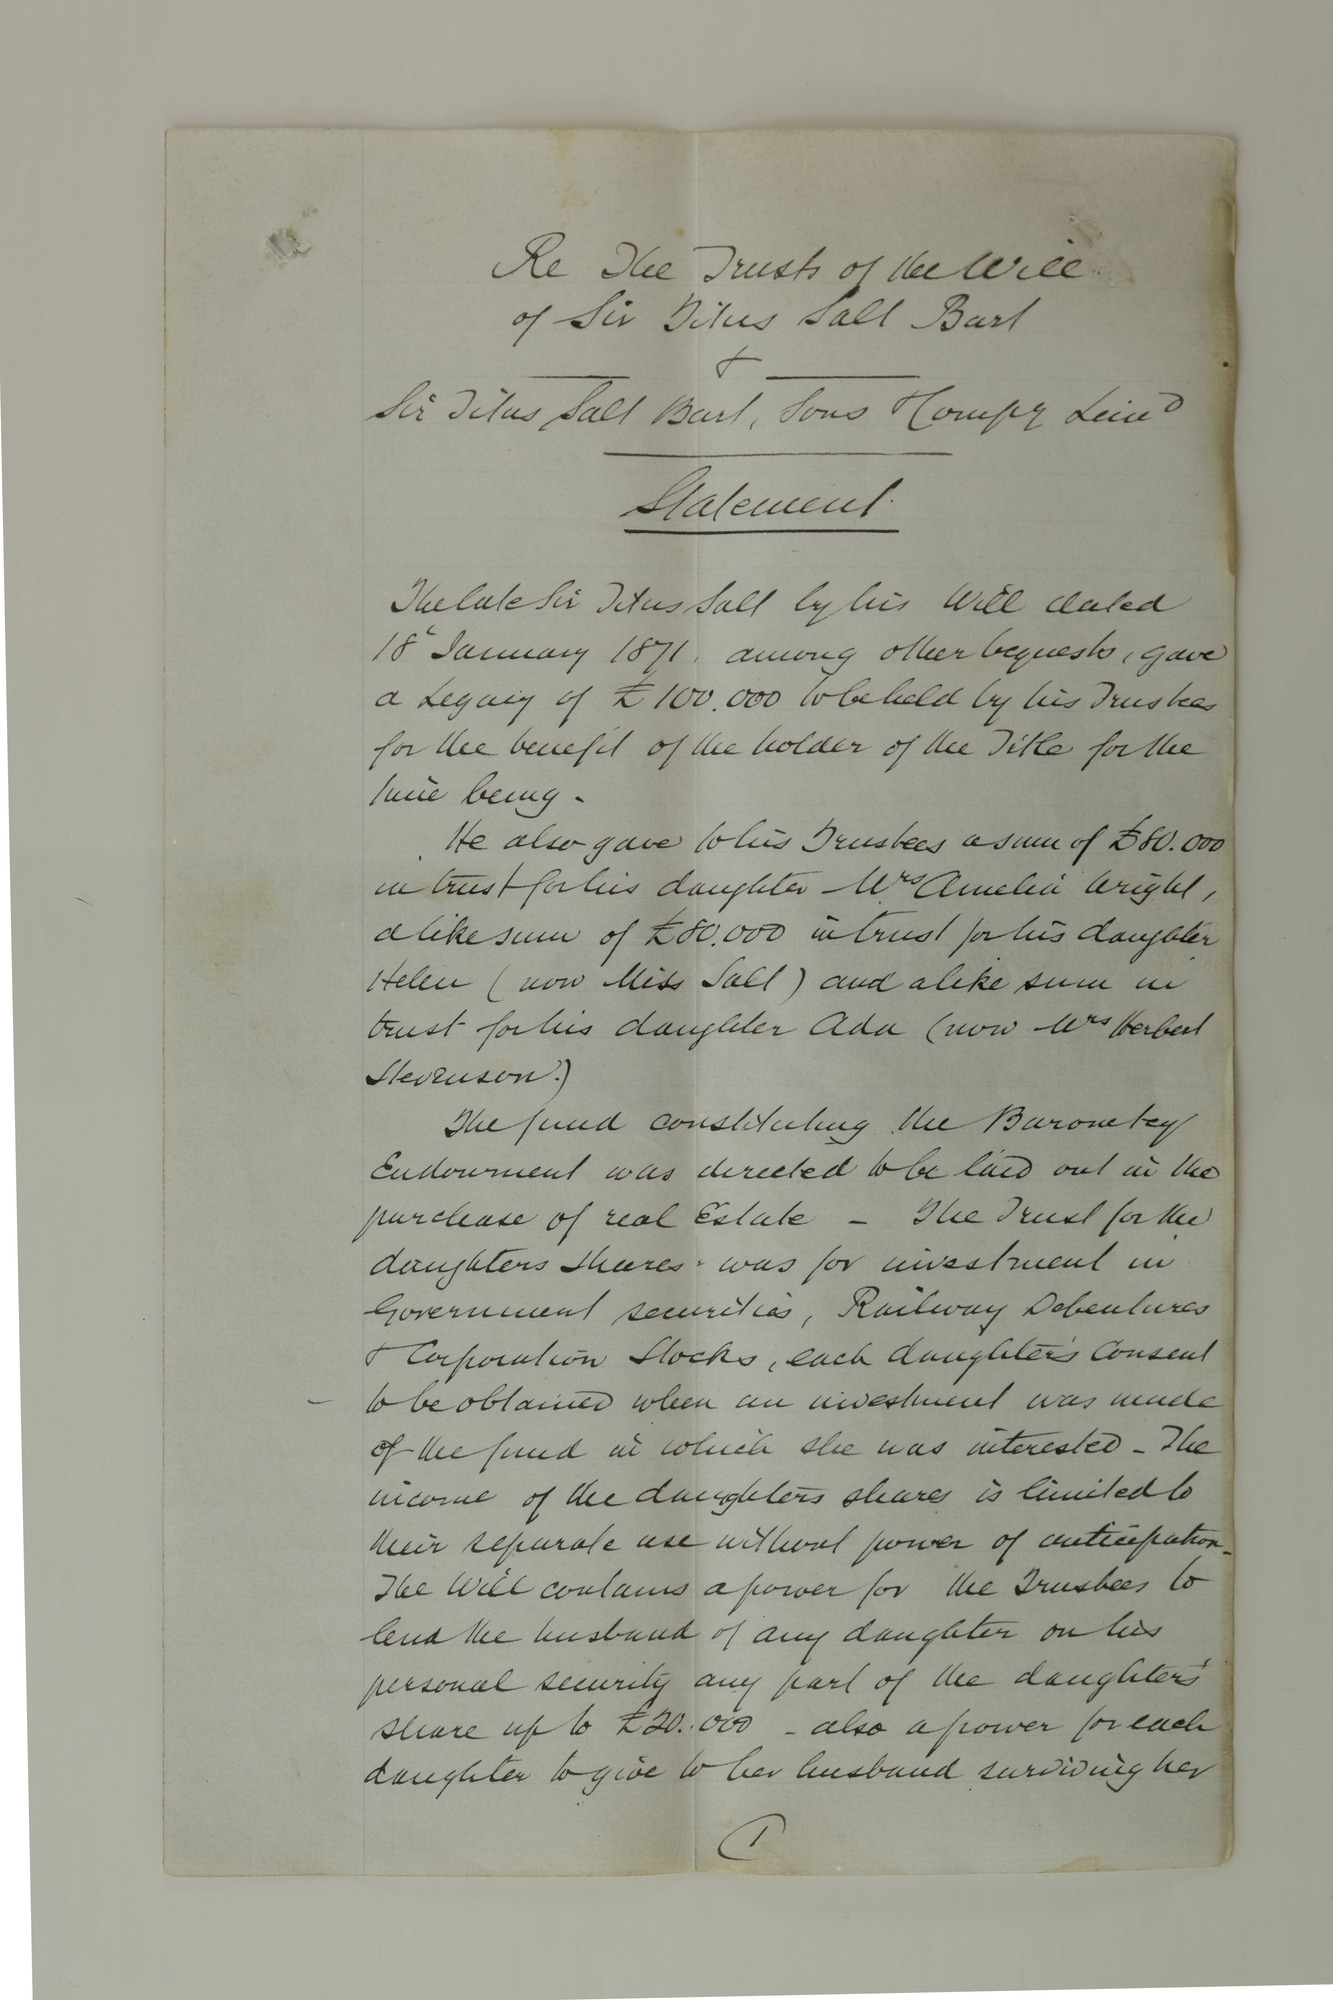 Re The Trusts of the Will
of Sir Titus Salt Bart
&
Sir Titus Salt Bart, Sons & Compy Limd
Statement.
The late Sir Titus Salt by his Will dated
18th January 1871, among other bequests, gave
a Legacy of £100.000 to be held by his Trustees
for the benefit of the holder of the Title for the
time being -
He also gave to his Trustees a sum of £80.000
in trust for his daughter Mrs Amelia Wright,
a like sum of £80.000 in trust for his daughter
Helen (now Miss Salt) and a like sum in
trust for his daughter Ada (now Mrs Herbert
Stevenson.)
The fund constituting the Baronetcy
Endowment was directed to be laid out in the
purchase of real Estate - The Trust for the
daughters shares was for investment in
Government securities, Railway Debentures
& Corporation Stocks, each daughter's consent
to be obtained when an investment was made
of the fund in which she was interested - The
income of the daughters shares is limited to
their separate use without power of anticipation -
The Will contains a power for the Trustees to
lend the husband of any daughter on his
personal security any part of the daughters'
share up to £20.000 - also a power for each
daughter to give to her husband surviving her
1